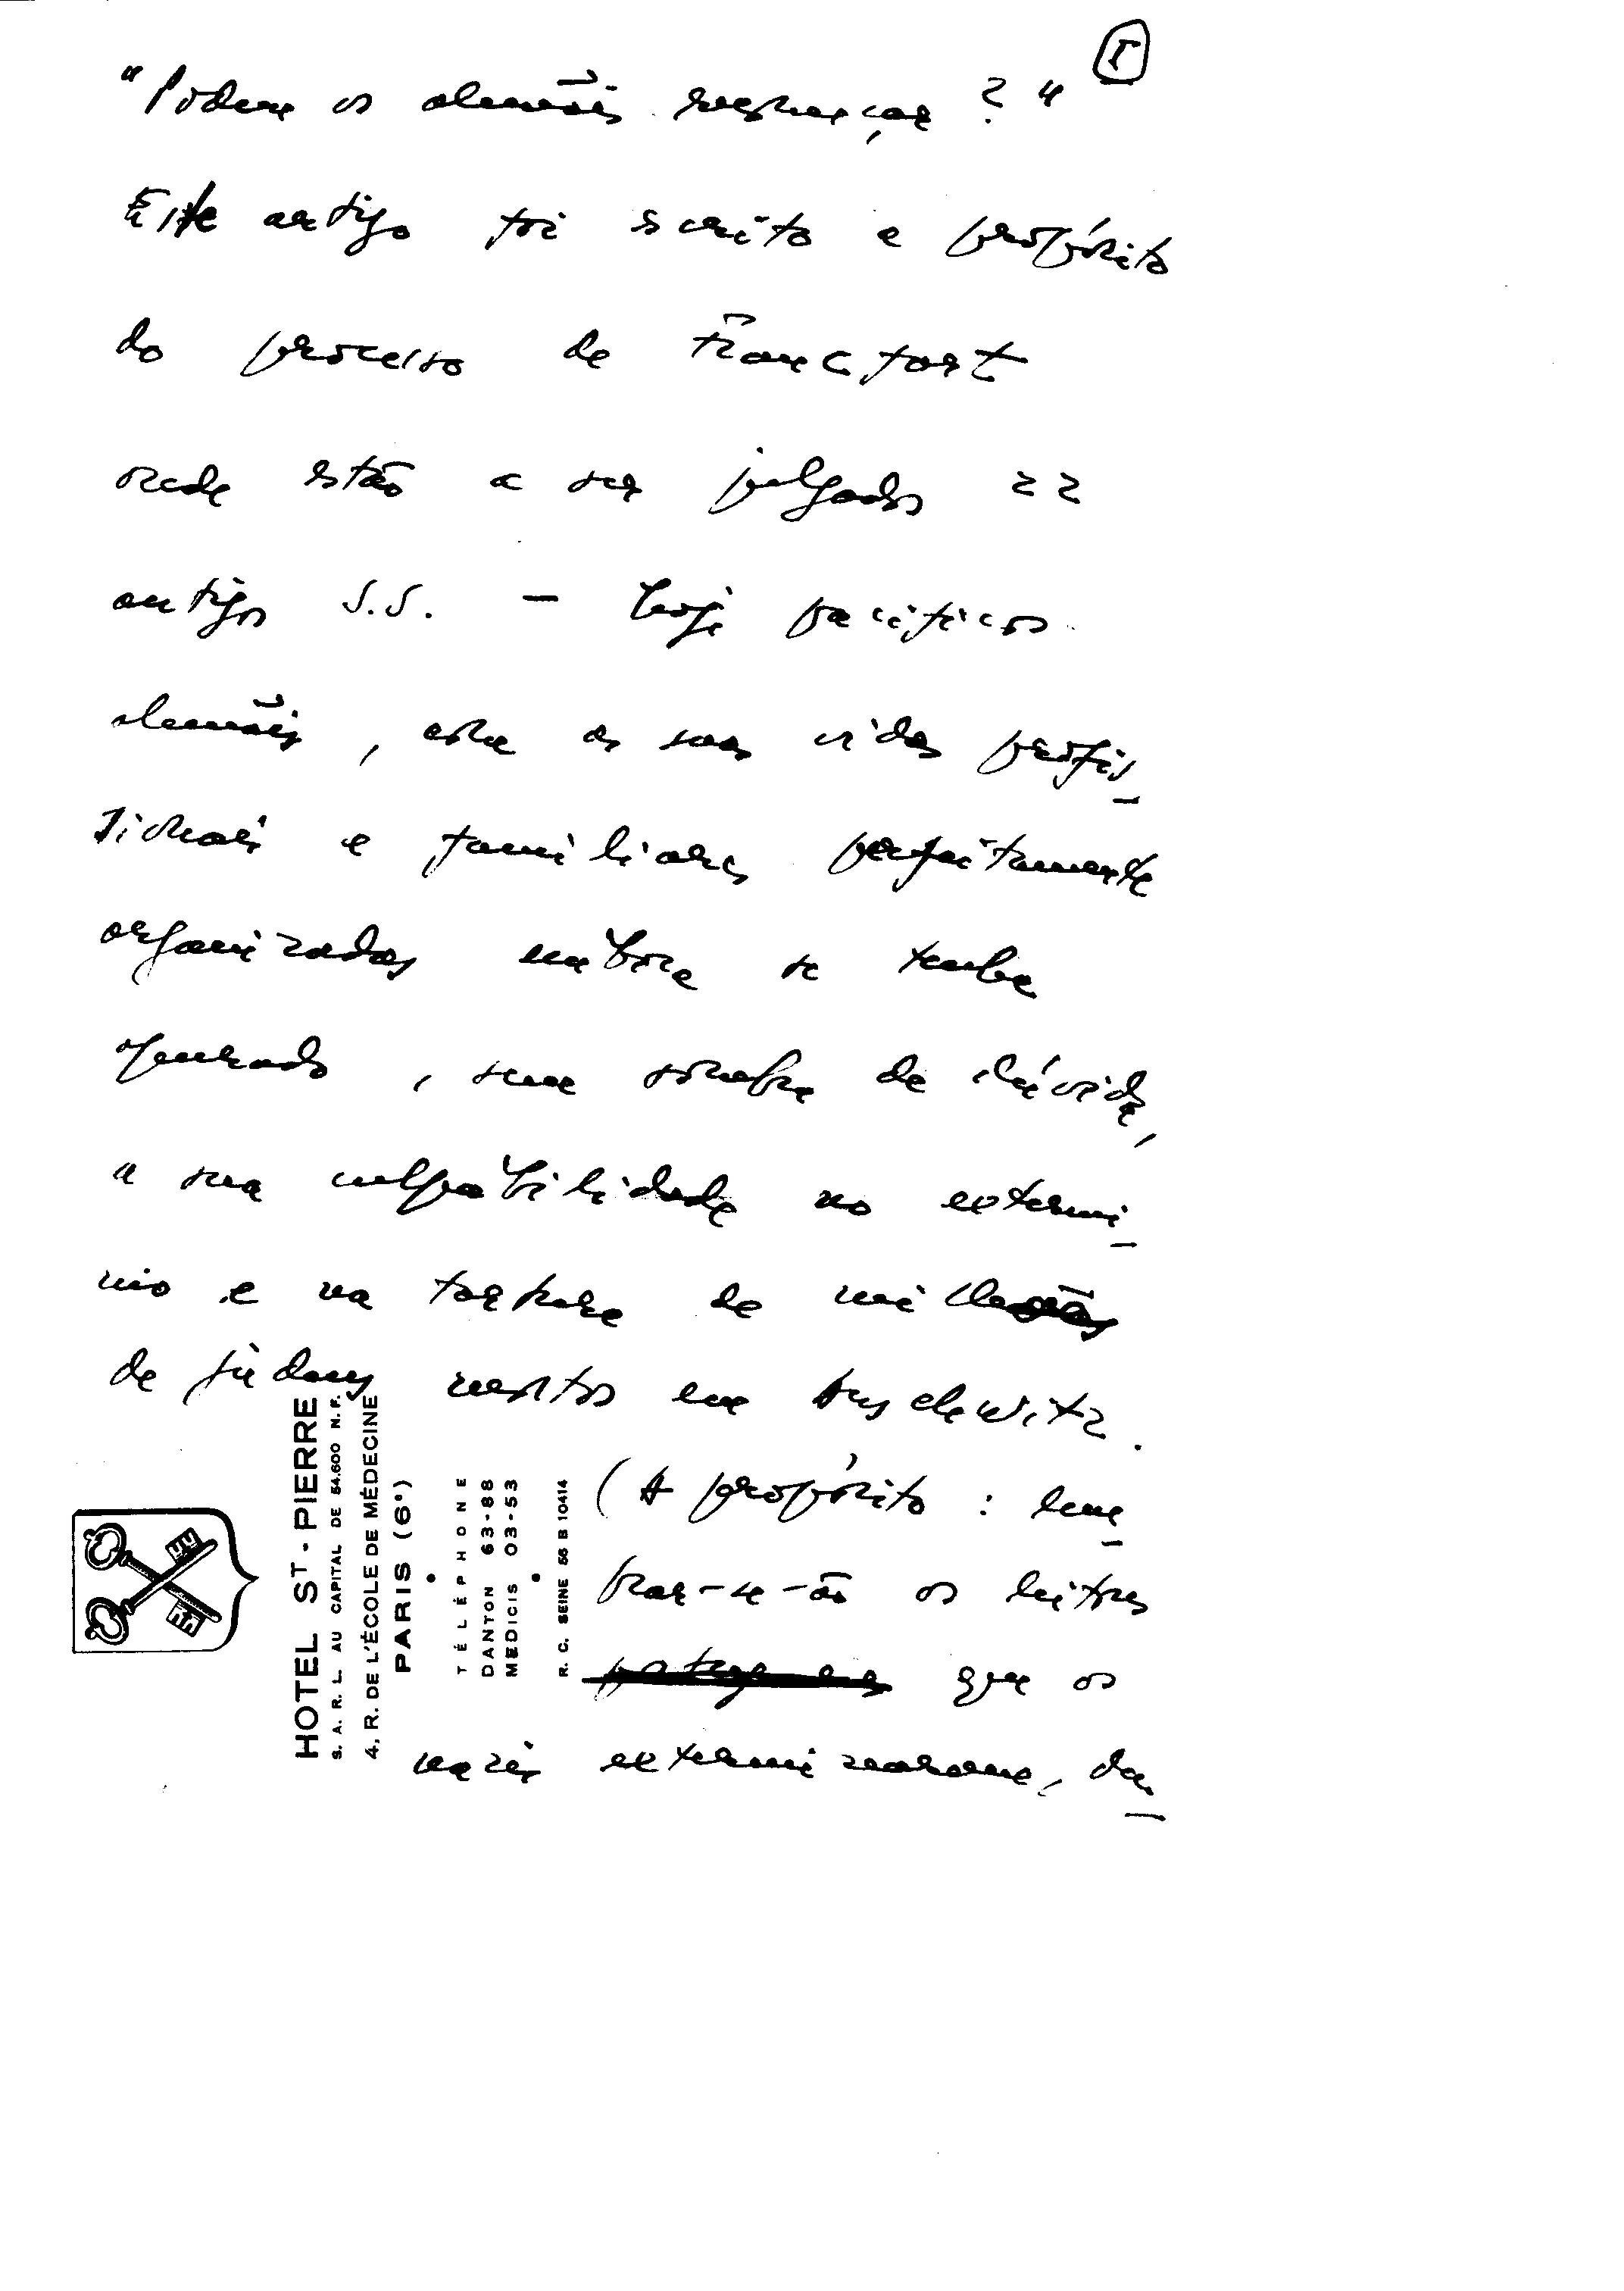 I
"Podem os alemães recomeçar?"
Este artigo foi escrito a propósito
do processo de Francfort
onde estão a ser julgados 22
antigos S.S. — hoje pacíficos
alemães, com as suas vidas profis-
sionais e familiares perfeitamente
organizadas embora se tenha
apurado, sem sombra de dúvida,
a sua culpabilidade no extermí-
nio e na tortura de milhões
de judeus mortos em Auschwitz.
(A propósito: lem-
brar-se-ão os leitores
que os
nazis exterminaram, du-
HOTEL ST - PIERRE
S. A. R. L. AU CAPITAL DE 54.600 N. F.
4, R. DE L'ÉCOLE DE MÉDECINE
PARIS (6e)
TÉLÉPHONE
DANTON 63-88
MEDICIS 03-53
R. C. SEINE 56 B 10414